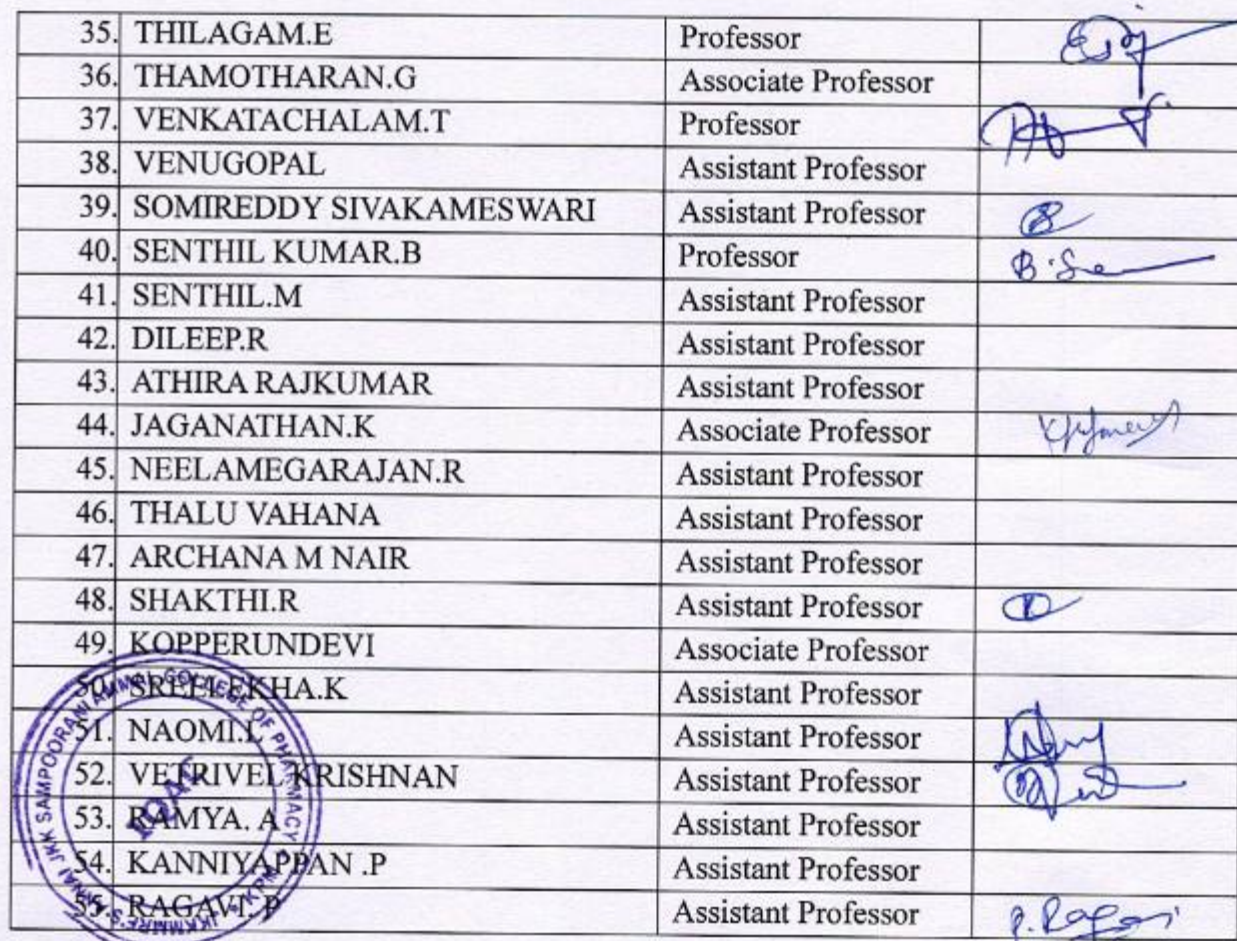 35. THILAGAM.E Professor
36. THAMOTHARAN.G Associate Professor
37. VENKATACHALAM.T Professor
38. VENUGOPAL Assistant Professor
39. SOMIREDDY SIVAKAMESWARI Assistant Professor
40. SENTHIL KUMAR.B Professor B.Se
41. SENTHIL.M Assistant Professor
42. DILEEP.R Assistant Professor
43. ATHIRA RAJKUMAR Assistant Professor
44. JAGANATHAN.K Associate Professor
45. NEELAMEGARAJAN.R Assistant Professor
46. THALU VAHANA Assistant Professor
47. ARCHANA M NAIR Assistant Professor
48. SHAKTHI.R Assistant Professor
49. KOPPERUNDEVI Associate Professor
50. SREELEKHA.K Assistant Professor
51. NAOMI.L Assistant Professor
52. VETRIVEL KRISHNAN Assistant Professor
53. RAMYA. A Assistant Professor
54. KANNIYAPPAN .P Assistant Professor
55. RAGAVI. P Assistant Professor P. Ragavi
JKKMMRF'S ANNAI JKK SAMPOORANI AMMAL COLLEGE OF PHARMACY
IQAC